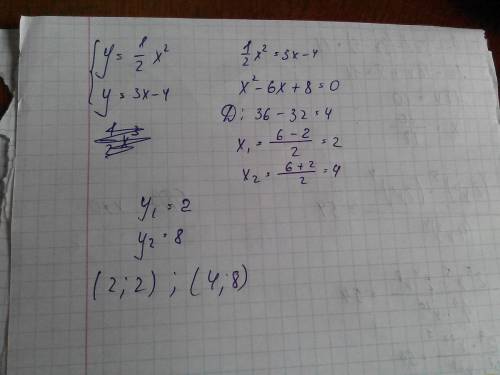 { y = 1/2 x²
y = 3x - 4
1/2 x² = 3x - 4
x² - 6x + 8 = 0
D: 36 - 32 = 4
x₁ = (6 - 2)/2 = 2
x₂ = (6 + 2)/2 = 4
y₁ = 2
y₂ = 8
(2; 2) ; (4; 8)